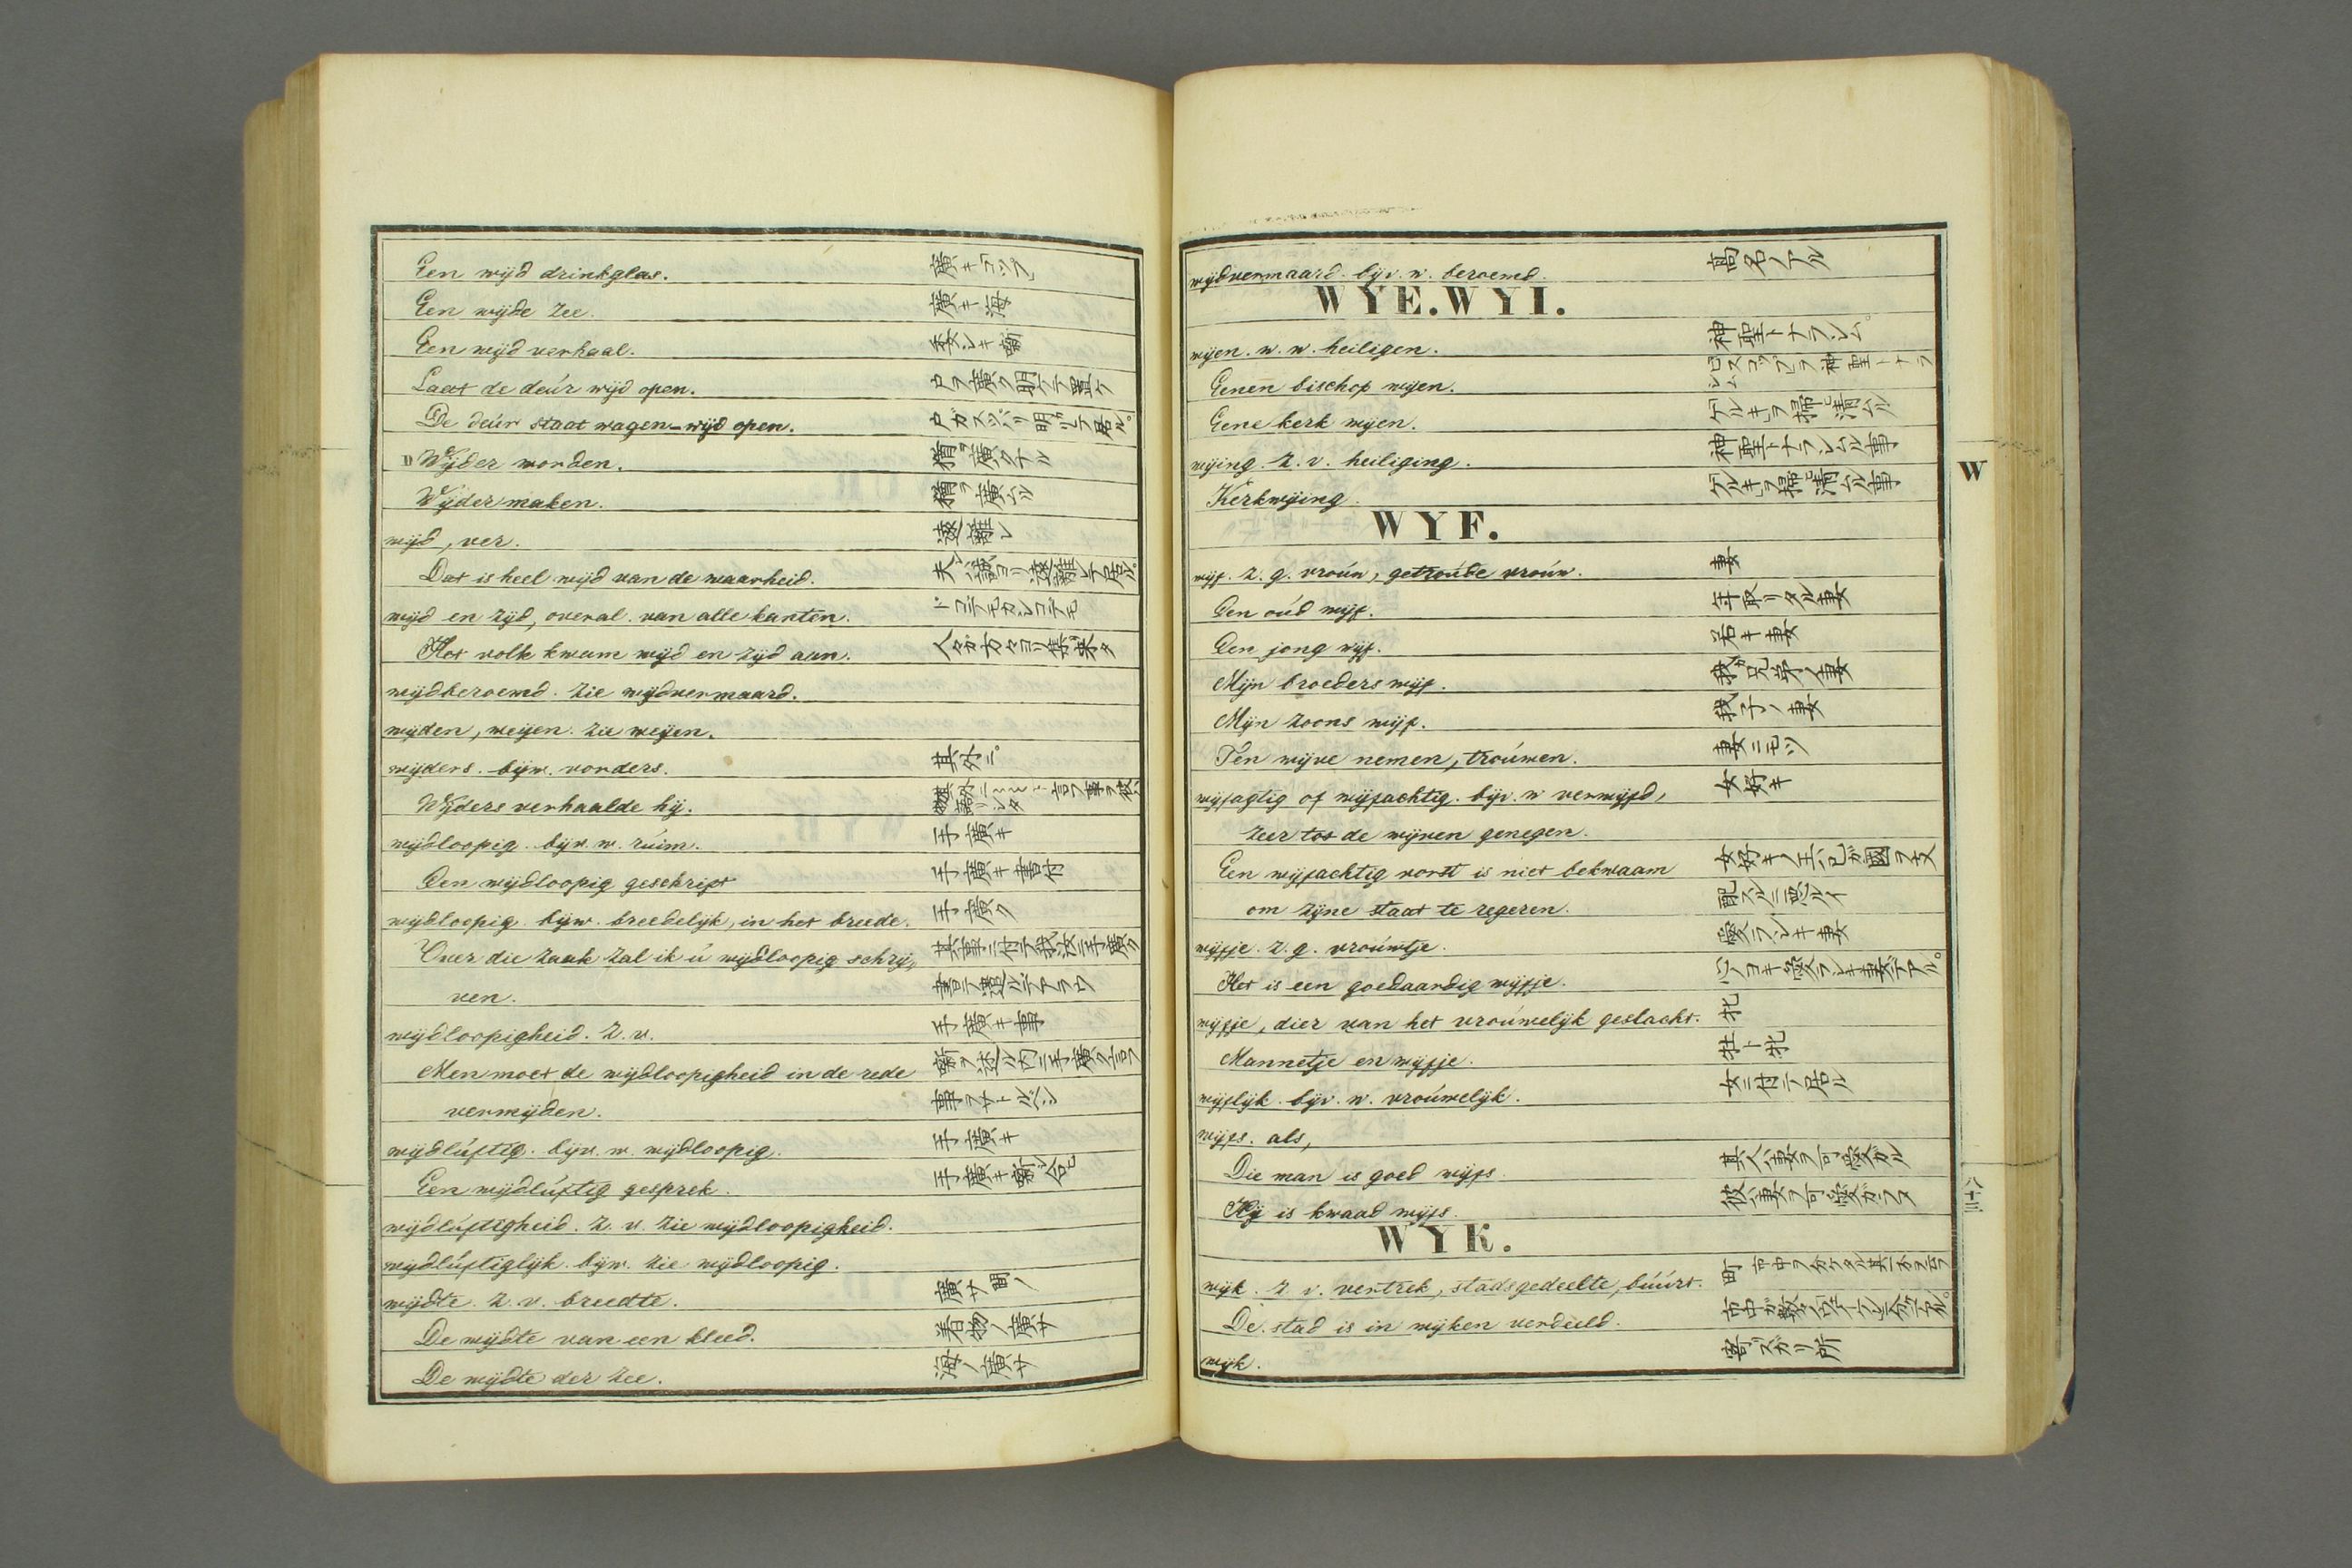 Een wijd drinkglas. 廣キ「コップ」
Een wijde zee. 廣キ海
Een wijd verhaal. 委シキ噺
Laat de deúr wijd open. 戸ヲ廣ク明ケテ置ケ
De deúr staat wagen-wijd open.
Wijder worden.
Wijder maken.
wijd, ver. 遠離シ
Dat is heel wijd van de waarheid.
wijd en zijd, overal. van alle kanten.
Het volk kwam wijd en zijd aan.
wijdberoemd. zie wijdvermaard.
wijden, weijen. zie weijen.
wijders. bijw. vorders. 其外ニ
Wijders verhaalde hij.
wijdloopig. bijv. w. rúim. 手廣キ
Een wijdloopig geschrift 手廣キ書付
wijdloopig. bijw. breedelijk, in het breede. 手廣ク
Over die zaak zal ik ú wijdloopig schrij„
ven.
wijdloopigheid. z. v. 手廣キ事
Men moet de wijdloopigheid in de rede
vermijden.
wijdlúftig. bijv. w. wijdloopig. 手廣キ
Een wijdlúftig gesprek. 手廣キ噺シ合ヒ
wijdlúftigheid. z. v. zie wijdloopigheid.
wijdlúftiglijk. bijw. zie wijdloopig.
wijdte. z. v. breedte. 廣サ
De wijdte van een kleed. 着物ノ廣サ
De wijdte der zee. 海ノ廣サ
wijdvermaard. bijv. w. beroemd. 高名ノアル
WYE.WYI.
wijen. w. w. heiligen. 神聖トナラシム。
Eenen bischop wijen. ビスコップヲ神聖トナラシム
Eene kerk wijen.
wijing. z. v. heiliging. 神聖トナラシムル事
Kerkwijing.
W
WYF.
wijf. z. g. vroúw, getroúde vroúw. 妻
Een oúd wijf. 年取リタル妻
Een jong wijf. 若キ妻
Mijn broeders wijf. 我ガ兄弟ノ妻
Mijn zoons wijf. 我子ノ妻
Ten wijve nemen, troúwen. 妻ニモツ
wijfagtig of wijfachtig. bijv. w verwijfd, 女好キ
zeer tot de wijven genegen.
Een wijfachtig vorst is niet bekwaam
om zijne staat te regeren.
wijfje. z. g. vroúwtje. 愛ラシキ妻
Het is een goedaardig wijfje.
wijfje, dier van het vroúwelijk geslacht. 牝
Mannetje en wijfje. 牡ト牝
wijflijk. bijv. w. vroúwelijk. 女ニ付テ居ル
wijfs. als,
Die man is goed wijfs.
Hij is kwaad wijfs.
八十三
WYK.
wijk. z. v. vertrek, stadsgedeelte, búúrt.
De stad is in wijken verdeeld.
wijk.